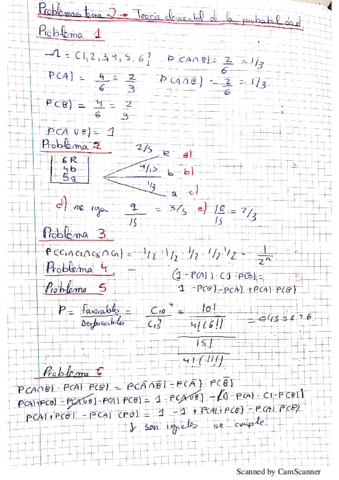 Problemas tema 2 → Teoría elemental de la probabilidad
Problema 1
Ω = {1, 2, 3, 4, 5, 6} P(A∩B) = 2/6 = 1/3
P(A) = 4/6 = 2/3 P(A∩B) = 2/6 = 1/3
P(B) = 4/6 = 2/3
P(A∪B) = 1
Problema 2
6R
4b
5a
2/5 R a)
4/15 b b)
1/3 a c)
d) no roja 9/15 = 3/5 e) 10/15 = 2/3
Problema 3
= 1/2 · 1/2 · 1/2 · 1/2 · 1/2 = 1/2^n
Problema 4 — (1 - P(A)) · (1 - P(B)) =
1 - P(B) - P(A) + P(A) P(B)
Problema 5
P = Favorables / = C10^4 / C15^4 = 10! / 4!(6!) / 15! / 4!(11!) =
Problema 6
P(A∩B) - P(A) P(B) = P(A∩B) - P(A) · P(B)
P(A)+P(B) - P(A∪B) - P(A) P(B) = 1 - P(A∪B) - [(1 - P(A)) · (1 - P(B))]
P(A)+P(B) - P(A) P(B) = 1 - 1 + P(A)+P(B) - P(A) P(B)
son iguales se cumple
Scanned by CamScanner